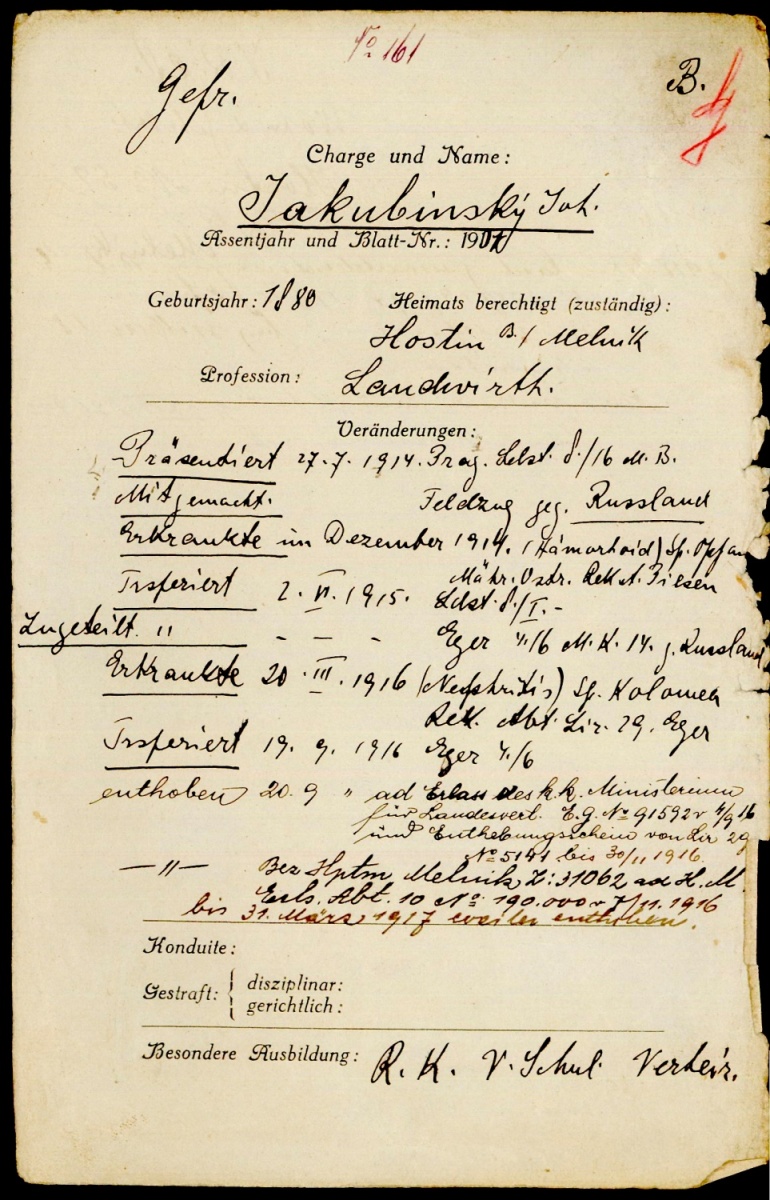 No 161
Gefr. B.
Charge und Name:
Jakubinský Joh.
Assentjahr und Blatt-Nr.: 1901
Geburtsjahr: 1880 Heimats berechtigt (zuständig):
Hostin B./ Melnik
Profession: Landwirth.
Veränderungen:
Präsentiert 27.7.1914. Prag. Ldst. 8./16 M. B.
Mitgemacht. Feldzug geg. Russland
Erkrankte im Dezember 1914. (Hämorhoid) Sp.
Mähr. Ostr.
Trsferiert 2.VI.1915. Ldst. 8./I. -
Zugeteilt. " - - - Eger 4./6 M. K. 14. g. Russland
Erkrankte 20.III.1916 (Nephritis) Sp. Kolomea
Abt. Lir. 29. Eger
Trsferiert 19. 9. 1916 Eger 4./6
enthoben 20. 9 " ad Erlass des k.k. Ministerium
für Landesvert. No 91592 v 4/9 16
und Enthebungsschein von Lir 29
No 5141 bis 30/11 1916.
— " — Bez Hptm Melnik Z: 31062 ad H. M.
Erls. Abt. 10 No 190.000 v 7/11. 1916
bis 31. März 1917 weiter enthoben.
Konduite:
Gestraft: { disziplinar:
gerichtlich:
Besondere Ausbildung: R. K. V. Schul. Verheir.